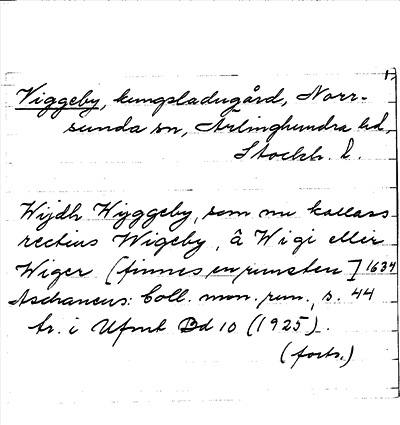 1.
Viggeby, kungsladugård, Norr-
sunda sn, Ärlinghundra hd,
Stockh. l.
Wijdh Wyggeby, som nu kallass
rectius Wigeby, â Wigi eller
Wiger [finnes en runsten] 1634
Aschaneus: Coll. mon. run., s. 44
tr. i Ufmt Bd 10 (1925).
(forts.)